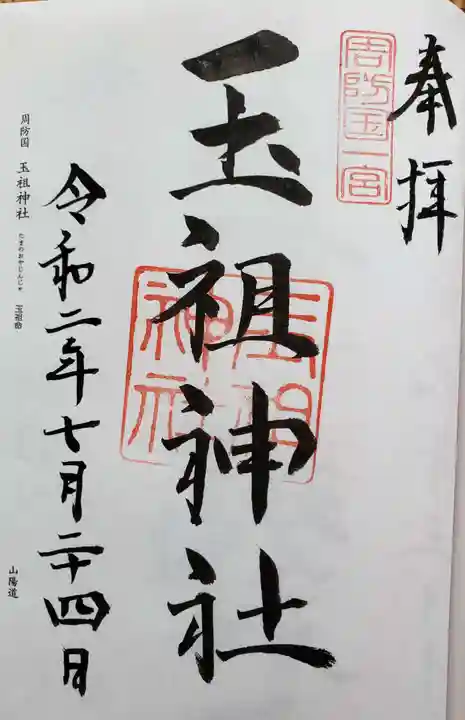 奉拝
周防国一宮
玉祖神社
玉祖神社
令和二年七月二十四日
周防国 玉祖神社 たまのおやじんじゃ 玉祖命
山陽道